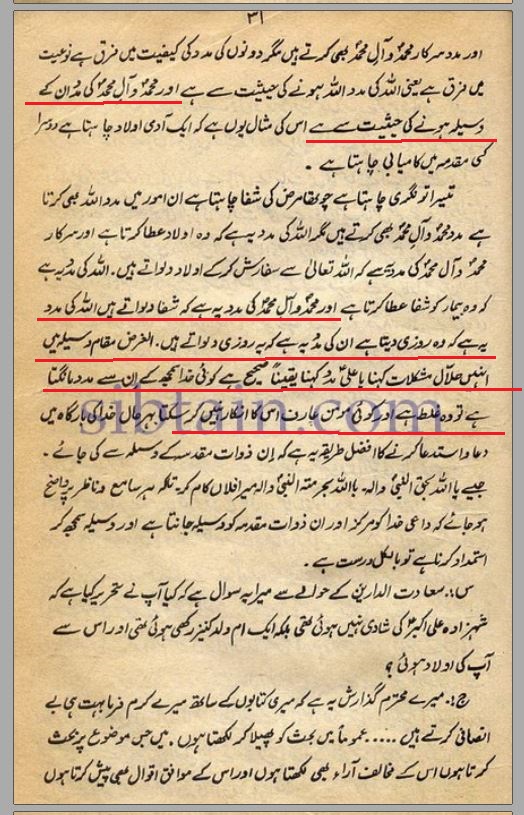 ۳۱
اور مدد سرکار محمدؐ و آلِ محمدؐ بھی کرتے ہیں مگر دونوں کی مدد کی کیفیت میں فرق ہے نوعیت
میں فرق ہے یعنی اللہ کی مدد اللہ ہونے کی حیثیت سے ہے اور محمدؐ و آلِ محمدؐ کی مدد ان کے
وسیلہ ہونے کی حیثیت سے ہے اس کی مثال یوں ہے کہ ایک آدمی اولاد چاہتا ہے دوسرا
کسی مقدمہ میں کامیابی چاہتا ہے ۔
تیسرا تونگری چاہتا ہے چوتھا مرض کی شفا چاہتا ہے ان امور میں مدد اللہ بھی کرتا
ہے مدد محمدؐ و آلِ محمدؐ بھی کرتے ہیں مگر اللہ کی مدد یہ ہے کہ وہ اولاد عطا کرتا ہے اور سرکار
محمدؐ و آل محمدؐ کی مدد یہ ہے کہ اللہ تعالیٰ سے سفارش کر کے اولاد دلواتے ہیں. اللہ کی مدد یہ ہے
کہ وہ بیمار کو شفا عطا کرتا ہے اور محمدؐ و آلِ محمدؐ کی مدد یہ ہے کہ شفا دلواتے ہیں اللہ کی مدد
یہ ہے کہ وہ روزی دیتا ہے ان کی مدد یہ ہے کہ یہ روزی دلواتے ہیں. الغرض مقام وسیلہ میں
انہیں حلّال مشکلات کہنا یا علیؑ مدد کہنا یقیناً صحیح ہے کوئی خدا سمجھ کے ان سے مدد مانگتا
ہے تو وہ غلط ہے اور کوئی مومن عارف اس کا انکار نہیں کر سکتا بہرحال خدا کی بارگاہ میں
دعا و استدعا کرنے کا افضل طریقہ یہ ہے کہ ان ذوات مقدسہ کے وسیلہ سے کی جائے ۔
جیسے یا اللہ بحق النبیؐ والہ یا اللہ بحرمتہ النبیؐ والہ میرا فلاں کام کر یہ تاکہ ہر سامع و ناظر پر واضح
ہو جائے کہ داعی خدا کو مرکز اور ان ذوات مقدسہ کو وسیلہ جانتا ہے اور وسیلہ سمجھ کر
استمداد کرتا ہے تو بالکل درست ہے ۔
س :. سعادت الدارین کے حوالے سے میرا یہ سوال ہے کہ کیا آپ نے تحریر کیا ہے کہ
شہزادہ علی اکبرؑ کی شادی نہیں ہوئی تھی بلکہ ایک ام ولد کنیز رکھی ہوئی تھی اور اس سے
آپ کی اولاد ہوئی ؟
ج :. میرے محترم گذارش یہ ہے کہ میری کتابوں کے ساتھ میرے کرم فرما بہت ہی بے
انصافی کرتے ہیں ..... عموماً میں بحث کو پھیلا کر لکھتا ہوں . میں جس موضوع پر بحث
کرتا ہوں اس کے مخالف آراء بھی لکھتا ہوں اور اس کے موافق اقوال بھی پیش کرتا ہوں
sibtain.com